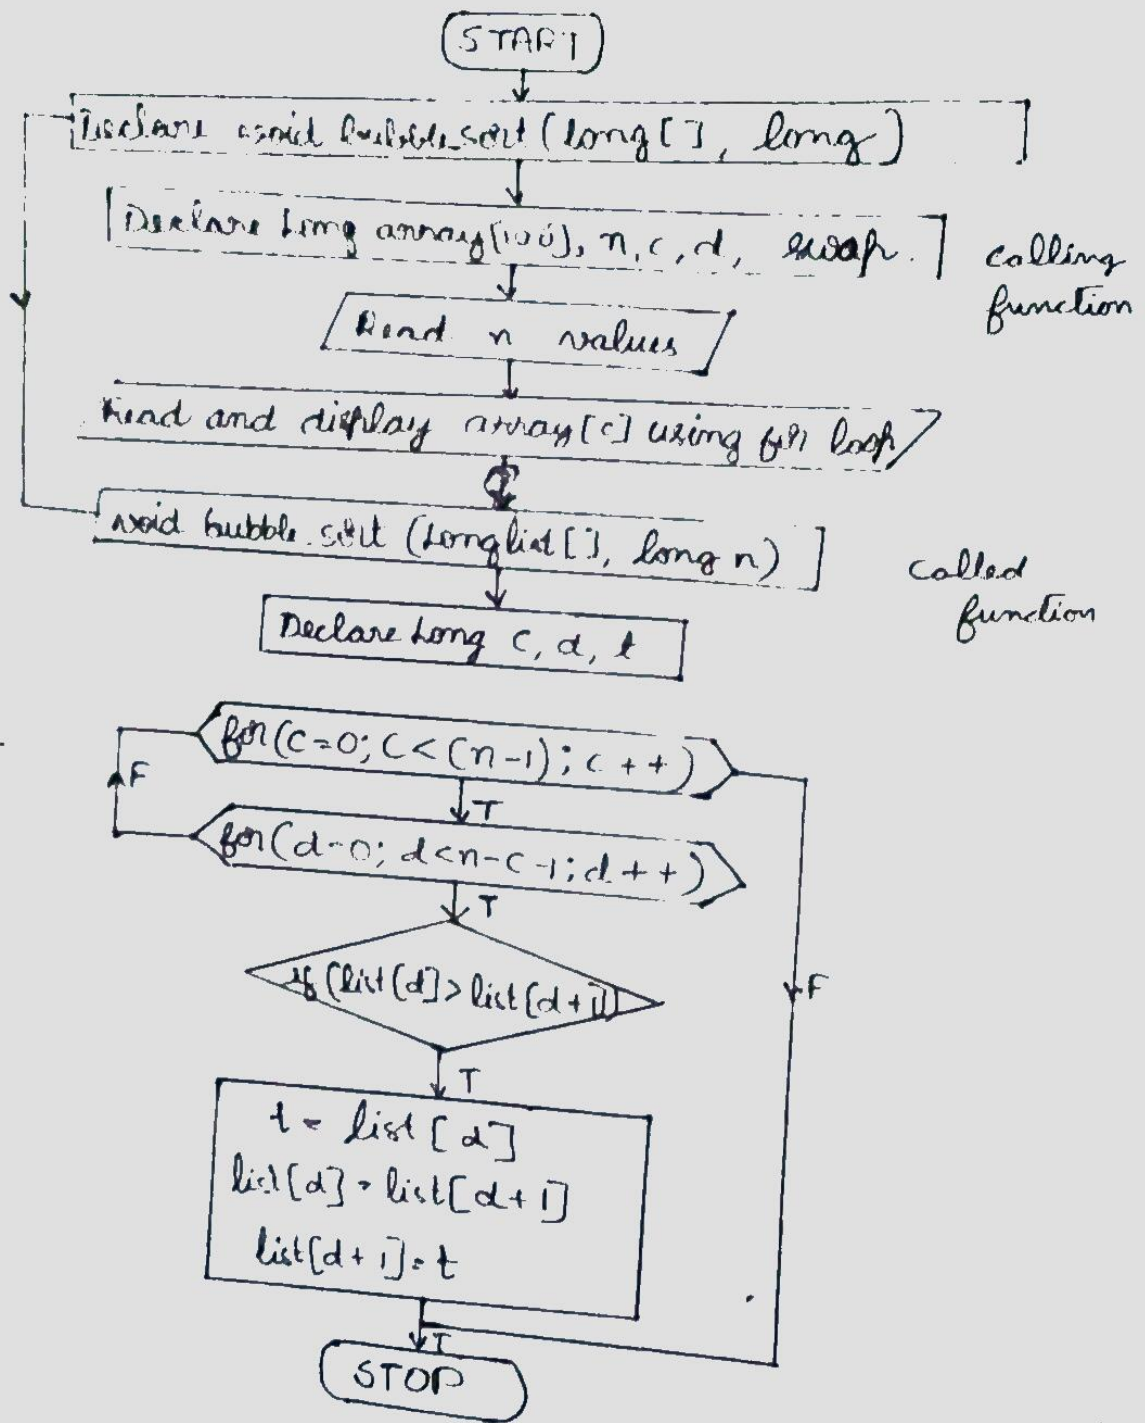 START
Declare void bubble_sort (long [], long)
Declare Long array[100], n, c, d, swap.
calling
function
Read n values
Read and display array [c] using for loop
void bubble_sort (Long list [], long n)
Called
function
Declare Long c, d, t
for (c=0; c < (n-1); c++)
F
T
for (d=0; d<n-c-1; d++)
T
if (list[d] > list[d+1])
F
T
t = list [d]
list[d] = list[d+1]
list[d+1] = t
T
STOP